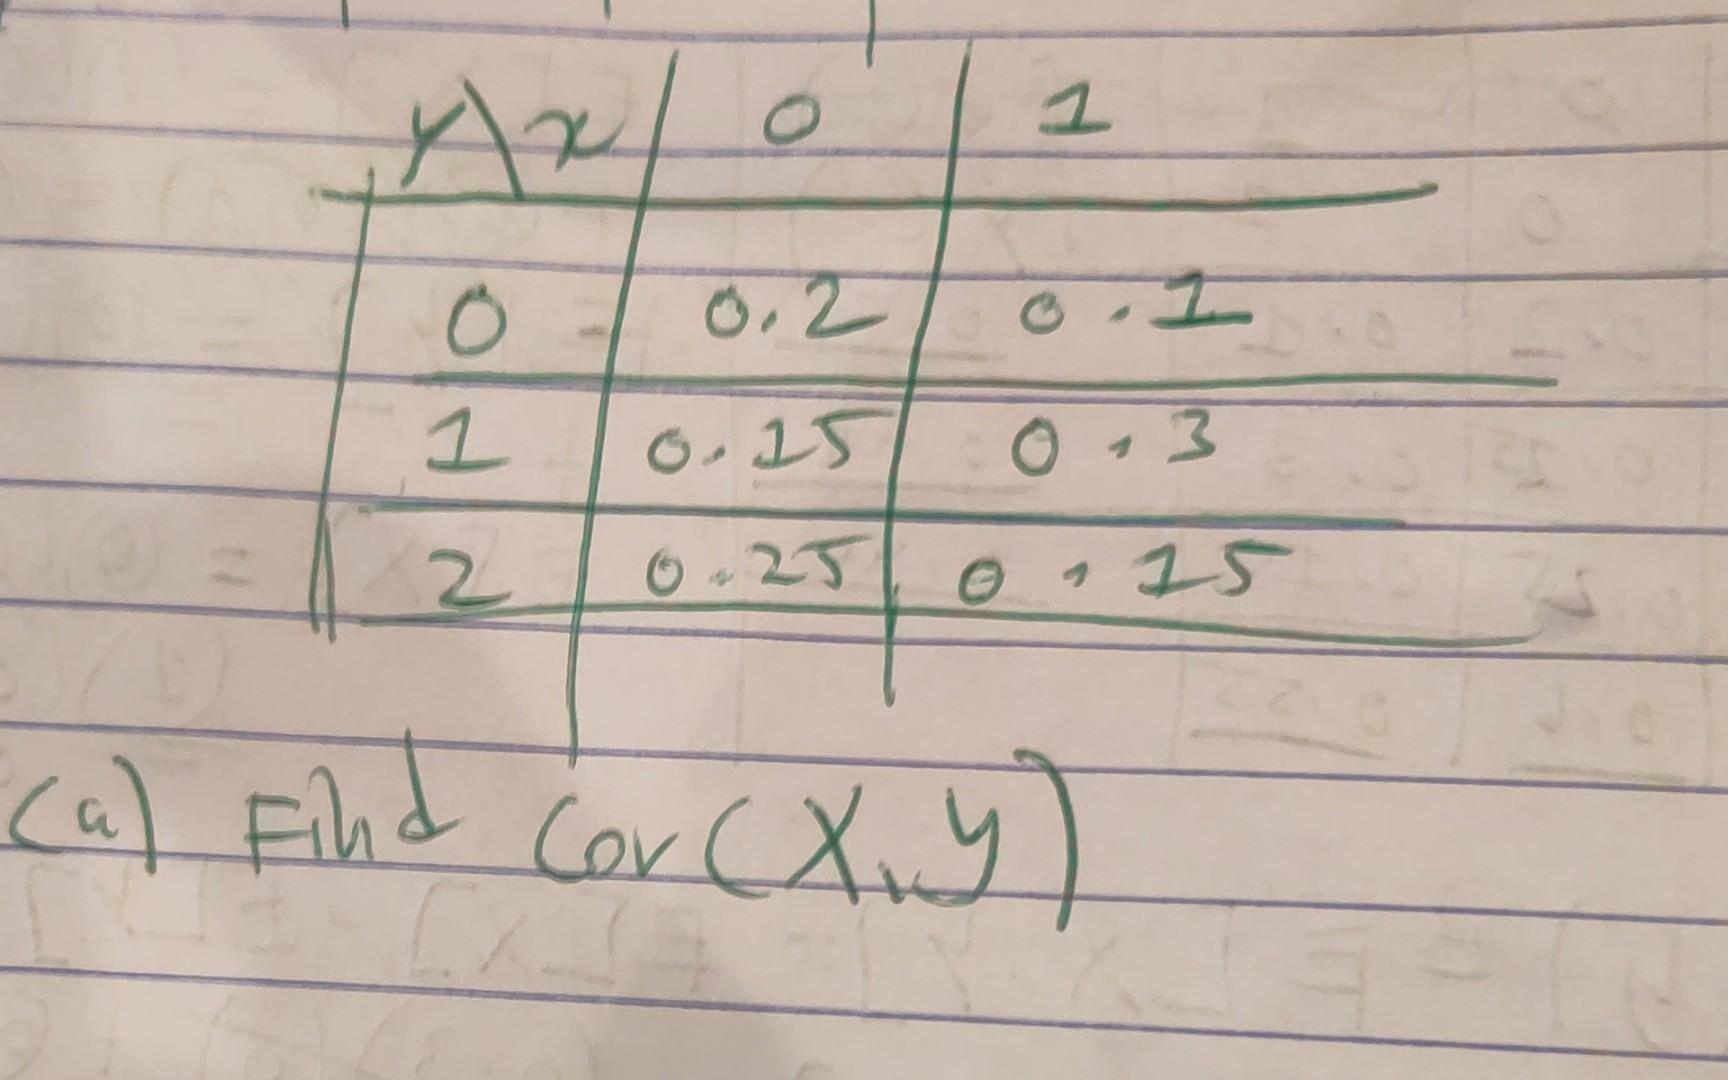 y\x 0 1
0 0.2 0.1
1 0.15 0.3
2 0.25 0.15
(a) Find Cov(X,Y)